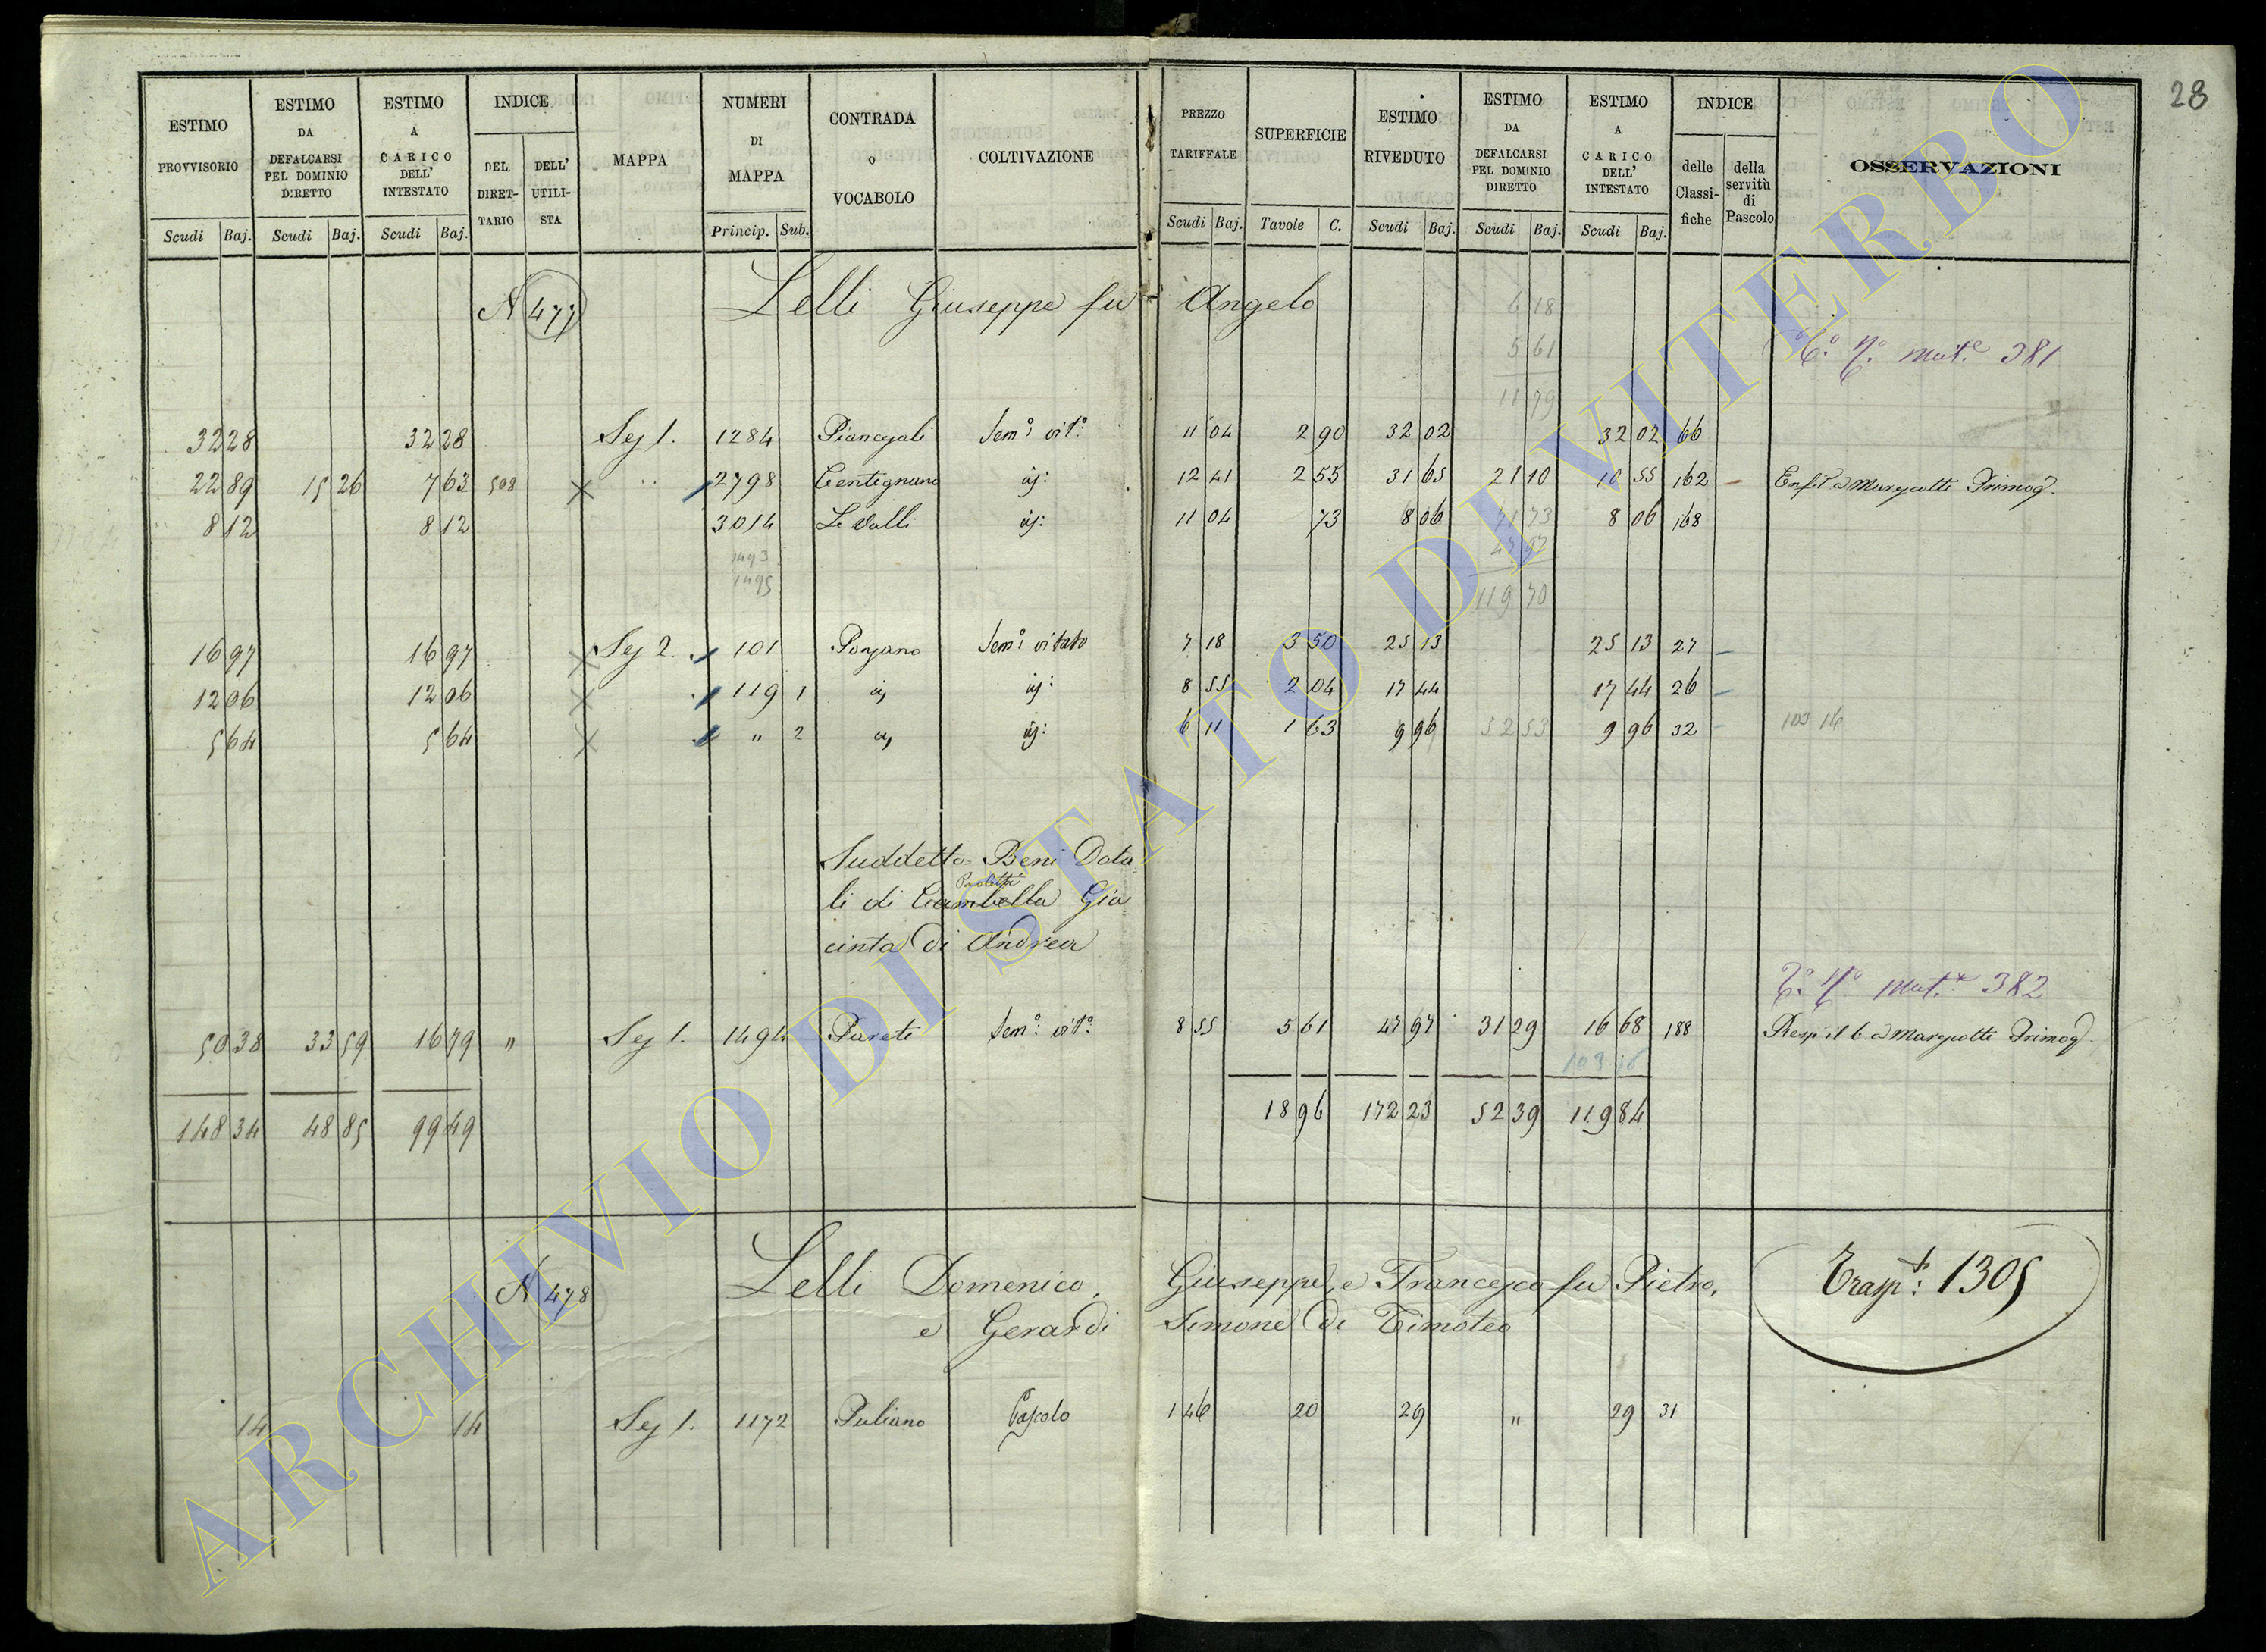 28
ESTIMO PROVVISORIO | ESTIMO DA DEFALCARSI PEL DOMINIO DIRETTO | ESTIMO A CARICO DELL' INTESTATO | INDICE | MAPPA | NUMERI DI MAPPA | CONTRADA O VOCABOLO | COLTIVAZIONE | PREZZO TARIFFALE | SUPERFICIE | ESTIMO RIVEDUTO | ESTIMO DA DEFALCARSI PEL DOMINIO DIRETTO | ESTIMO A CARICO DELL' INTESTATO | INDICE | OSSERVAZIONI
DEL DIRET-TARIO | DELL' UTILI-STA | delle Classi-fiche | della servitù di Pascolo
Scudi Baj. | Scudi Baj. | Scudi Baj. | Princip. Sub. | Scudi Baj. | Tavole C. | Scudi Baj. | Scudi Baj. | Scudi Baj.
N 477 Lelli Giuseppe fu Angelo
6 18
5 61
11 79
Mut.e 381
32 28 | 32 28 | Sez 1. | 1284 | Piancajali | Sem.o vit.o | 11 04 | 2 90 | 32 02 | 32 02 | 66
22 89 | 15 26 | 7 63 | 508 | 2798 | Centignano | 12 41 | 2 55 | 31 65 | 21 10 | 10 55 | 162 | a Margcotti Primog.
8 12 | 8 12 | 3014 | Le Valli | 11 04 | 73 | 8 06 | 8 06 | 168
71 73
1493 | 47 97
1495
119 70
16 97 | 16 97 | Sez 2. | 101 | Ponzano | Sem.o vitato | 7 18 | 3 50 | 25 13 | 25 13 | 27
12 06 | 12 06 | 119 1 | 8 55 | 2 04 | 17 44 | 17 44 | 26
5 64 | 5 64 | " 2 | 6 11 | 1 63 | 9 96 | 52 53 | 9 96 | 32 | 103 16
Suddetto Beni Dota
Paoletti
li di Ciambella Gia
cinta di Andrea
Mut.e 382
50 38 | 33 59 | 16 79 | " | Sez 1. | 1494 | Pareti | Sem.o vit.o | 8 55 | 5 61 | 47 97 | 31 29 | 16 68 | 188 | a Margcotti Primog.
103 16
148 34 | 48 85 | 99 49 | 18 96 | 172 23 | 52 39 | 119 84
N 478 Lelli Domenico, Giuseppe, e Francesco fu Pietro,
e Gerardi Simone di Timoteo
Trasp.: 1305
14 | 14 | Sez 1. | 1172 | Puliano | Pascolo | 1 46 | 20 | 29 | " | 29 | 31
ARCHIVIO DI STATO DI VITERBO